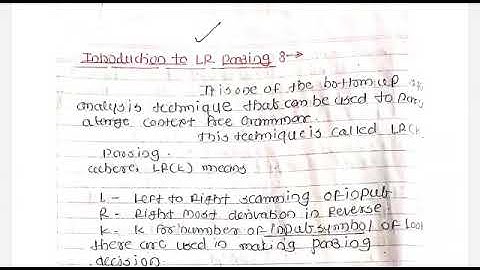 Introduction to LR Parsing :→
It is one of the bottom up
analysis technique that can be used to
a large context free Grammar.
This technique is called LR(k
Parsing.
where, LR(k) means
L - Left to Right scanning of input
R - Right most derivation in Reverse
k - k for number of input symbol of
there are used in making parsing
decision